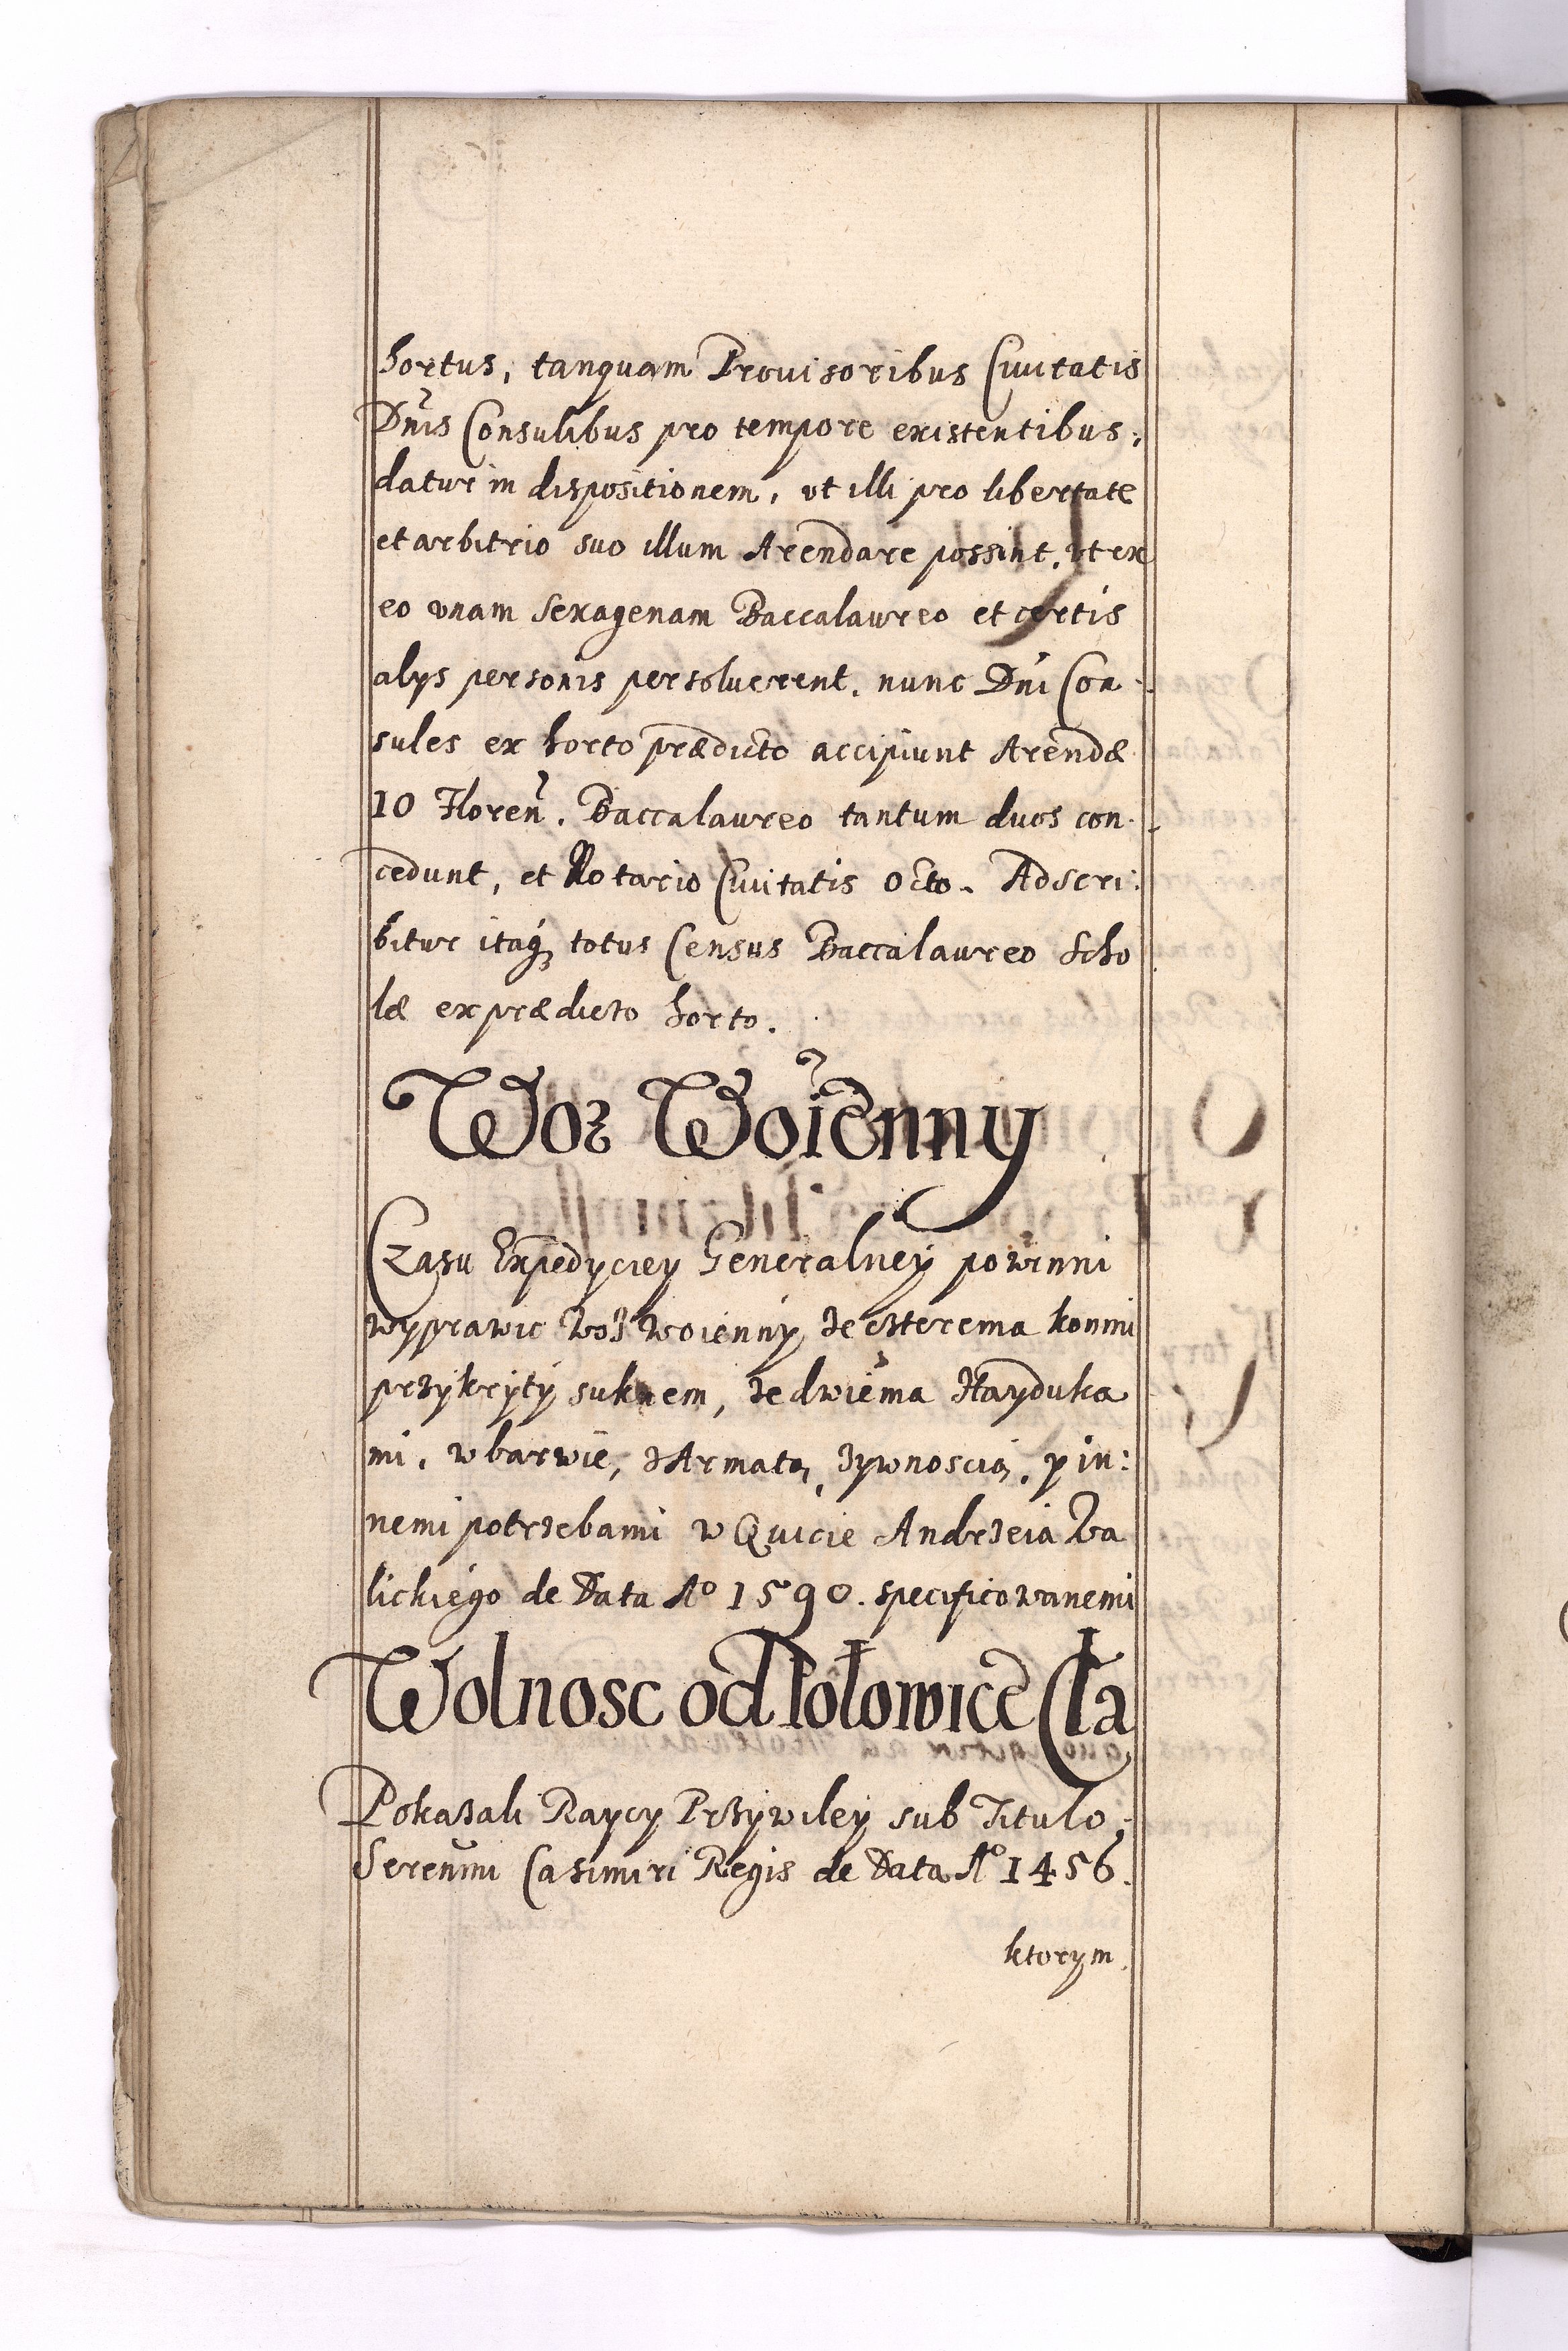 hortus, tanquam Prouisoribus Ciuitatis
Dnis Consulibus pro tempore existentibus,
datur in dispositionem, vt illi pro libertate
et arbitrio suo illum Arendare possint, vt ex
eo vnam sexagenam Baccalaureo et certis
alys personis persoluerent. nunc Dni Con-
sules ex horto prædicto accipiunt Arendæ
10 Floren. Baccalaureo tantum duos con-
cedunt, et Notario Ciuitatis octo. Adscri:
bitur itaq totus Census Baccalaureo Scho
læ ex prædicto horto.
Woz Woienny
Czasu Expedyciey Generalney powinni
wyprawic woz woienny ze czterema konmi
przykryty suknem, ze dwiema Hayduka
mi, w barwie, z Armatą, zywnoscią, y in:
nemi potrzebami w Quicie Andrzeia Za
lickiego de Data Aº 1590. specificowanemi
Wolnosc od Połowice Cła
Pokazali Raycy Przywiley sub Titulo
Serenmi Casimiri Regis de Data Aº 1456.
ktorym